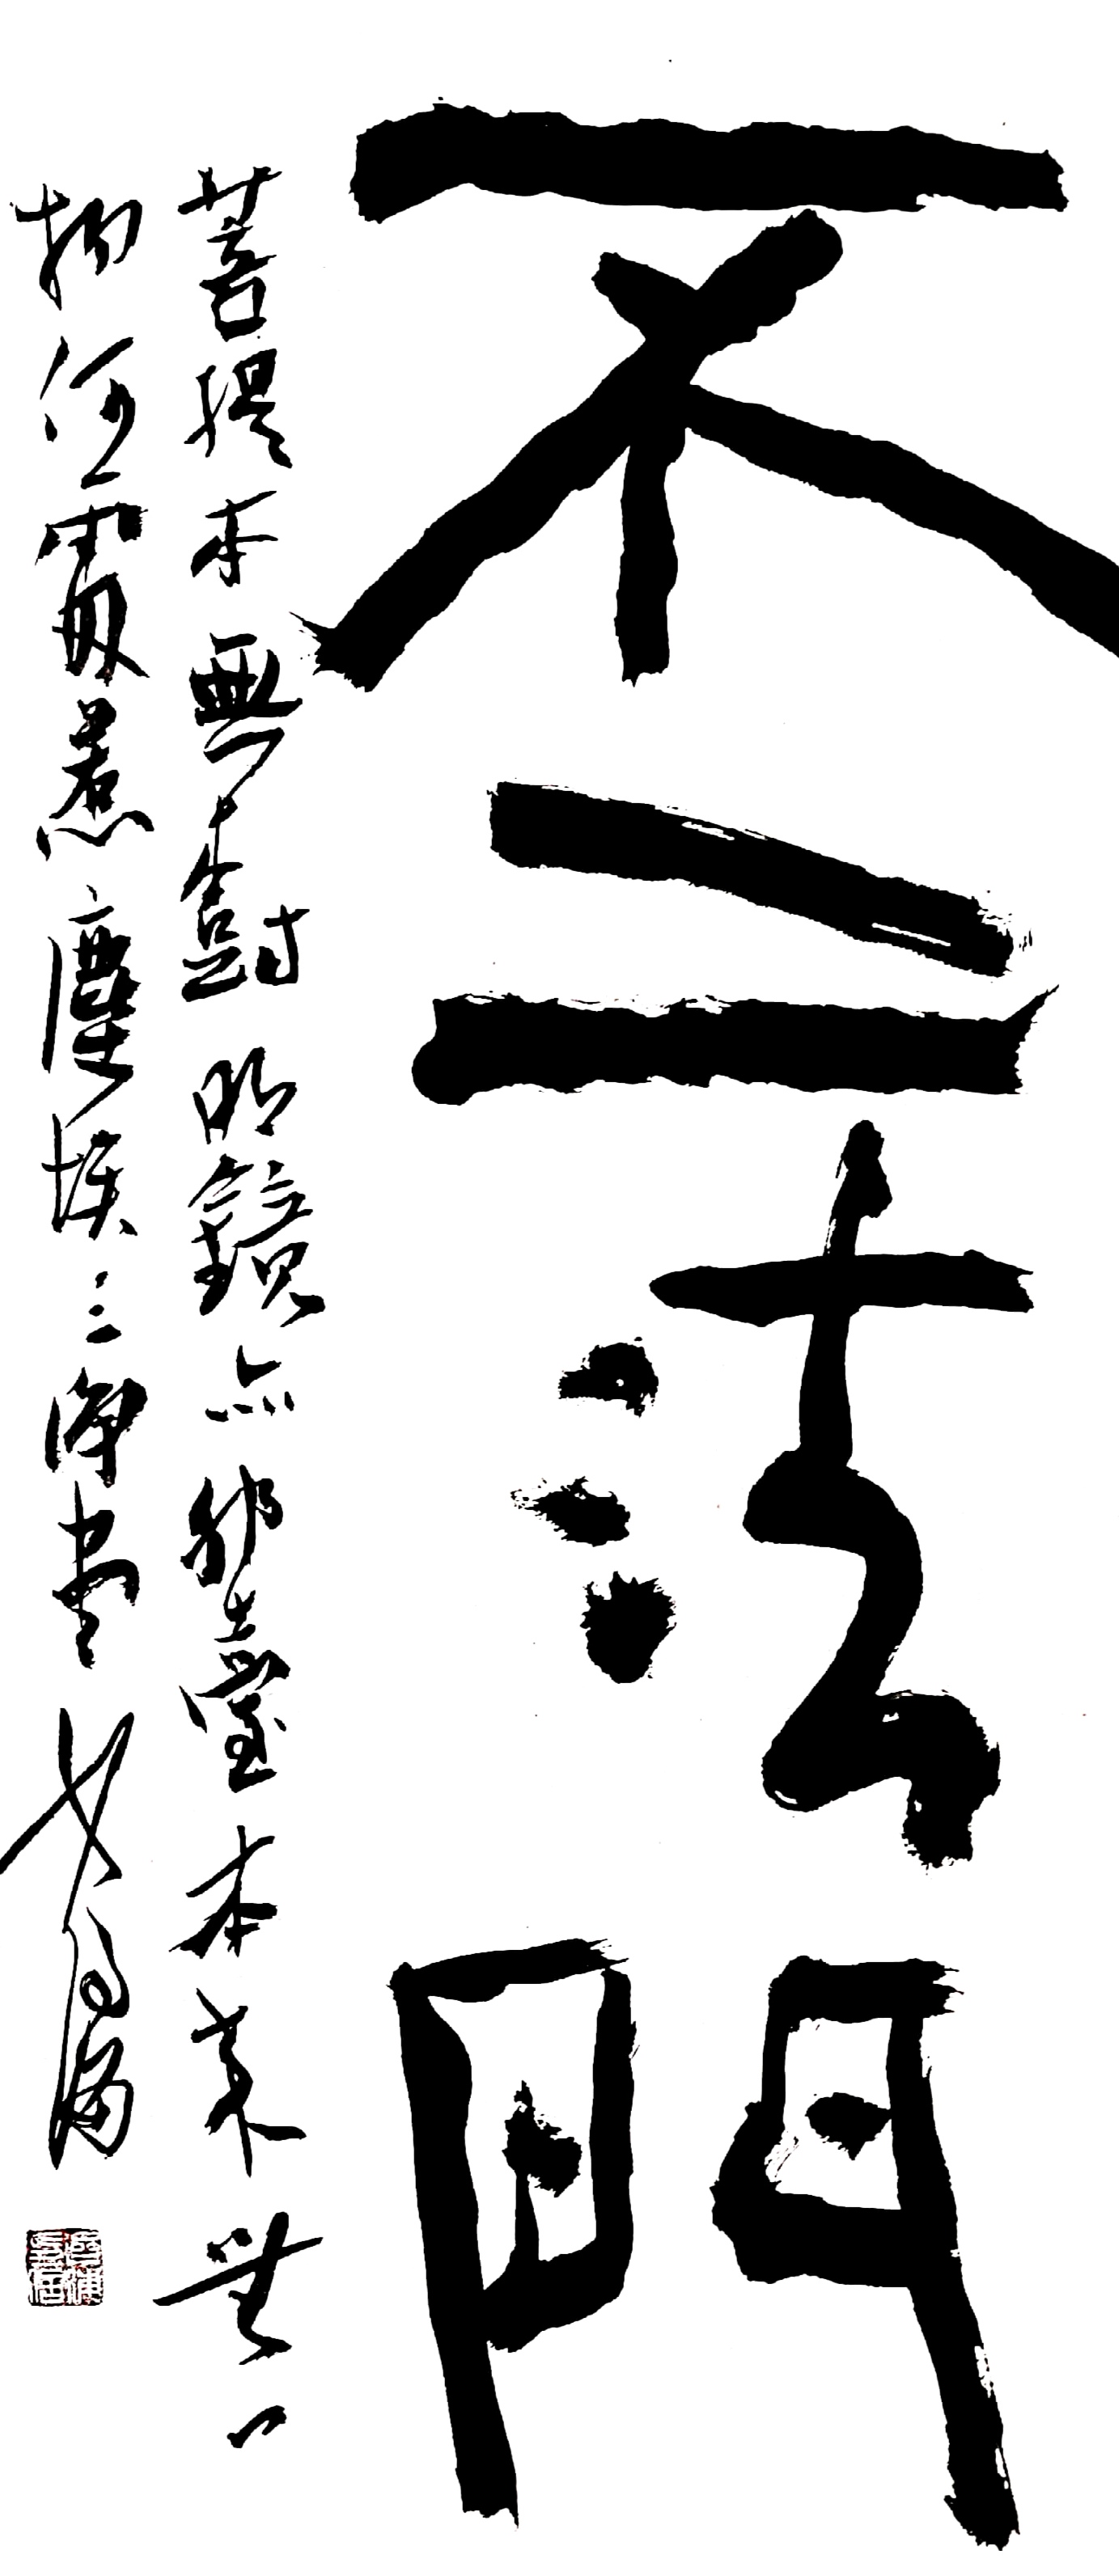 不二法門
菩提本無樹明鏡亦非臺本來無一
物何處惹塵埃三淨書